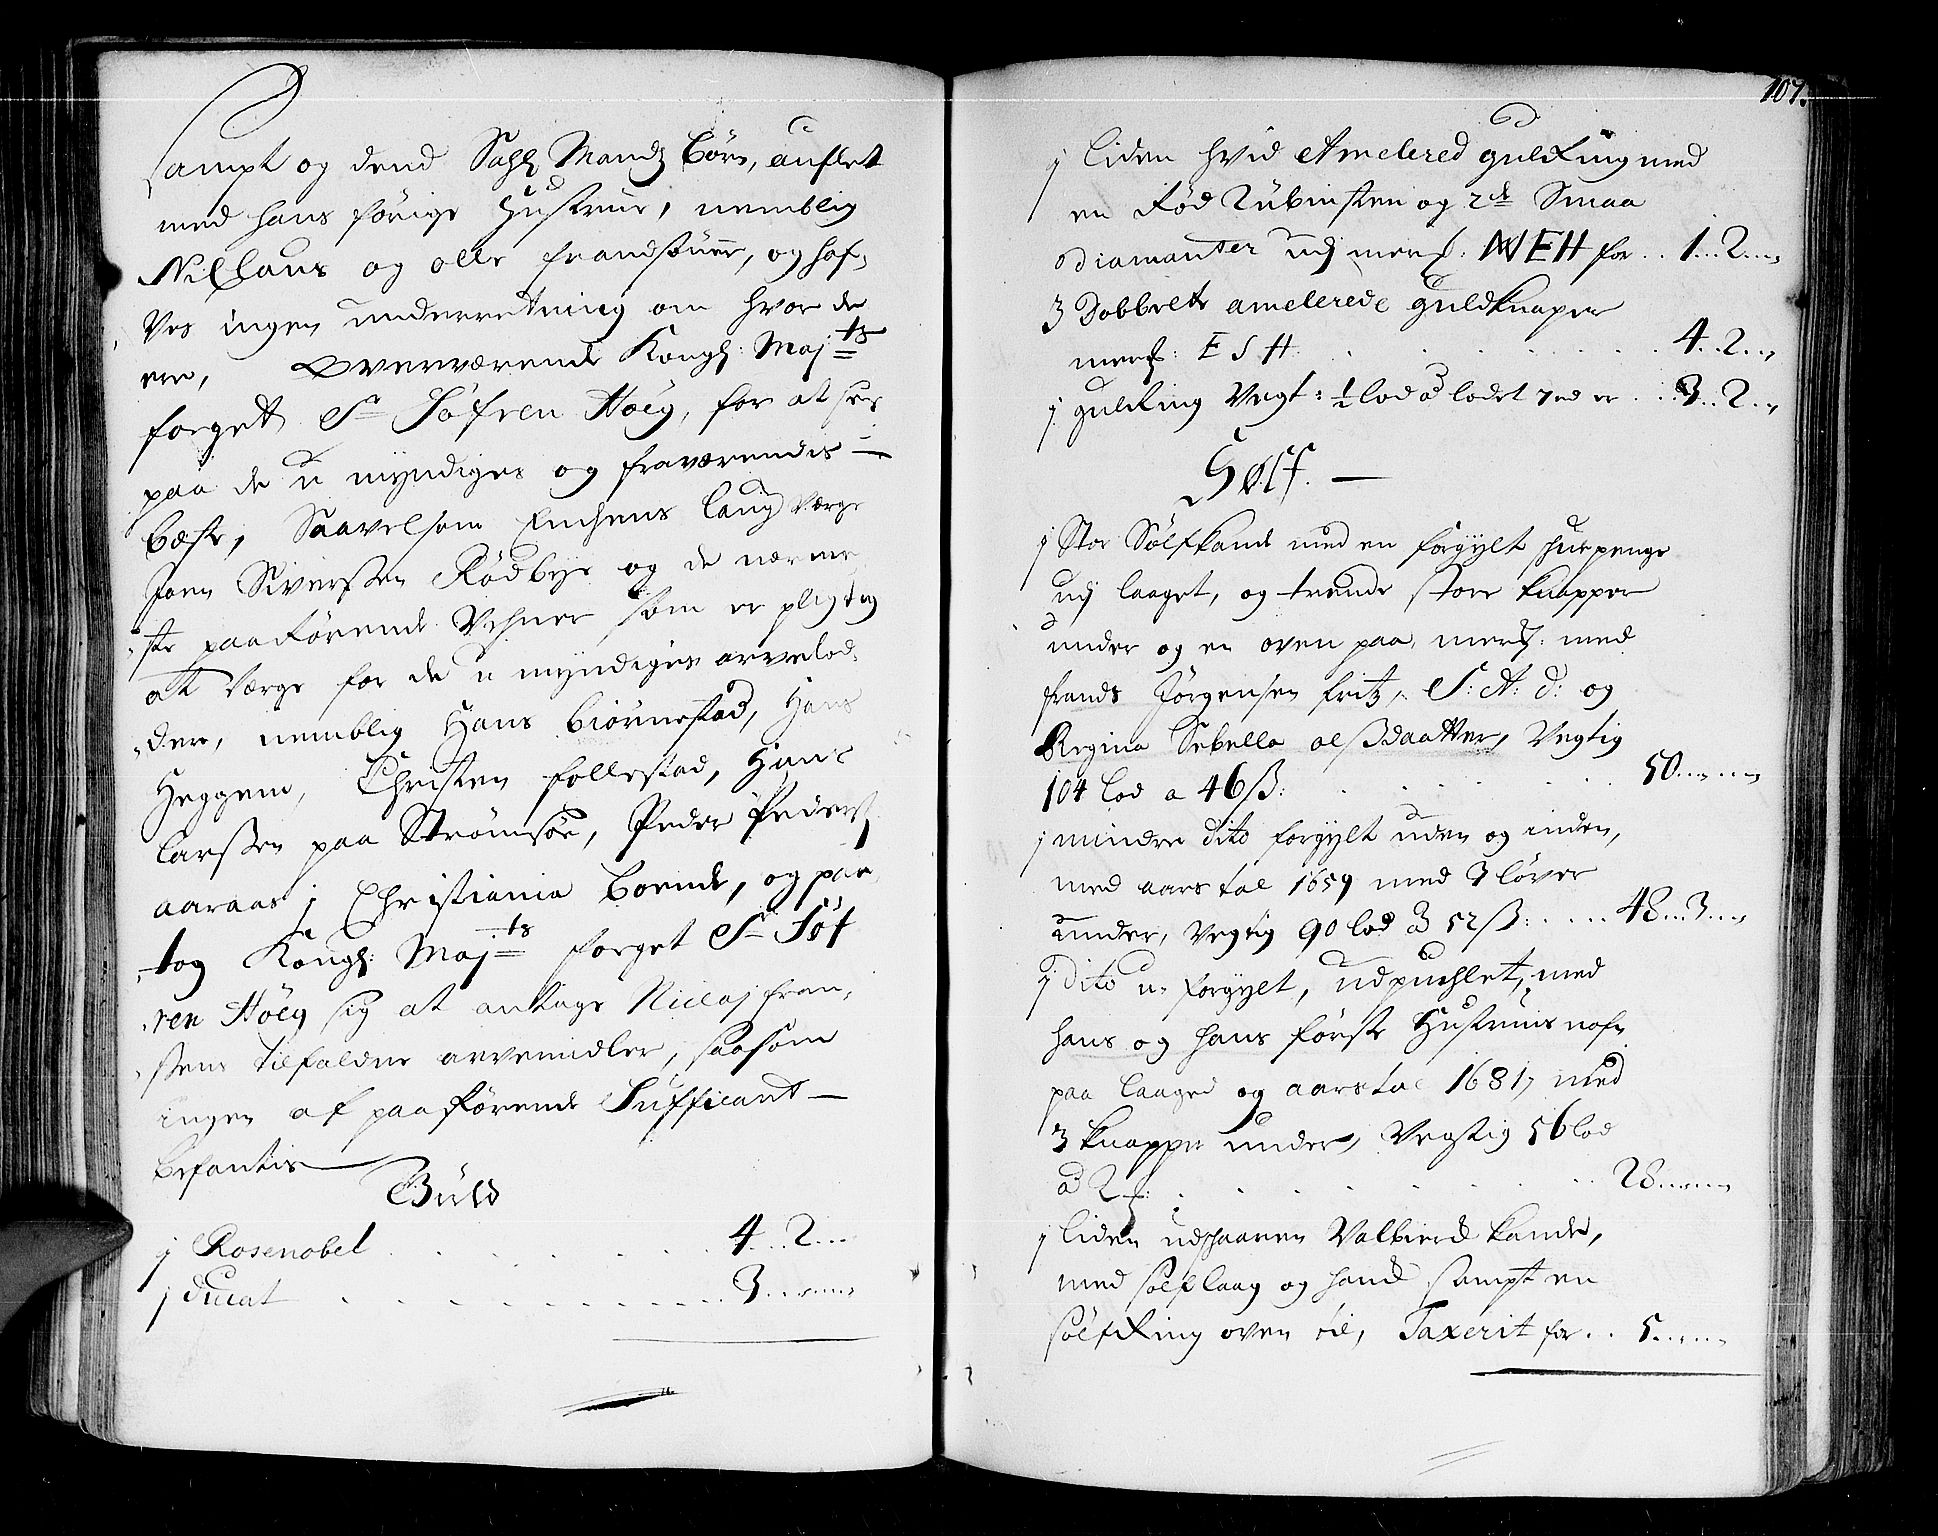 Sampt og dend Sahl Mandz børn, auflet
med hans forige Hustrue, nemblig
Niclaus og olle frandsønner, og haf„
Ves ingen underretning om hvor de
ere, Overværende Kongl: Maj:ts
foget Sr Søfren Høeg, for at see
paa de u myndiges og fraværendes
beste, Saavelsom Enchens laug Værge
Joen Siverssen Rødbye og de nærme„
„ste paaførende Vehner som er pligtig
at Værge for de u myndiges arvelod„
„der, nemblig Hans biørnestad, Hans
Heggem, Christen follestad, Hans
larssen paa Strømsøe, Peder Peders:
aaraas j Christiania boende, og paa„
„tog Kongl: Maj:ts foget Sr Søf
„ren Høeg sig at antage Niclaj fran„
„ssens tilfaldne arvemidler, saasom
ingen af paaførende Sufficant
befantis
Guld
j Rosenobel . . . . . . 4..2...
j ducat . . . . . . 3......
107.
j liden hvid Amelered guldring med
en Rød Rubinsten og 2de Smaa
diamanter udj merk: NEH for . . 1..2...
3 Dobbelte amelerede guldknaper
merk: E S H: . . . . . . 4..2..
j guldring Vegt: ½ lod a lodet 7 rd er . . 3..2..
Sølf.
j Stor Sølfkande med en forgylt skuepenge
udj laaget, og trende store knapper
under og en oven paa, merk: med
frands Jørgensen fritz, S: A: d: og
Regina Sebella olssdaatter, Vegtig
104 lod a 46 ß: . . . . . . 50......
j mindre dito forgylt uden og inden,
med aars tal 1659 med 3 løver
under, Vegtig 90 lod a 52 ß: . . . . 48...3...
j dito u- forgylt, udpuchlet, med
hans og hans første Hustrues nafn
paa laaged og aarstal 1681, med
3 knapper under, Vegtig 56 lod
a 2 . . . . . . 28......
j liden udskaaren Valbierd kande,
med sølflaag og hand sampt en
sølfring oven til, Taxerit for . . 5......